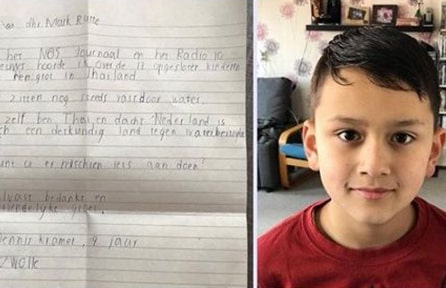 dhr Mark Rutte
het NOS Journaal en het Radio 10
hoorde ik over de 12 opgesloten kinderen
een grot in Thailand
zitten nog steeds vast door water.
zelf ben Thai en dacht Nederland is
een deskundig land tegen
u er misschien iets aan doen?
bedankt en
groet,
Dennis Kramer, 9 jaar
Zwolle